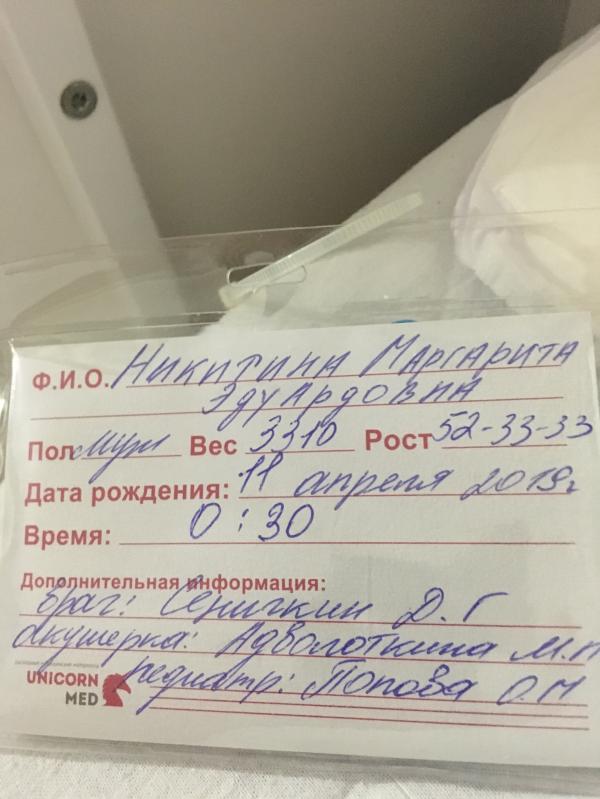 Ф.И.О. Никитина Маргарита
Эдуардовна
Пол муж Вес 3310 Рост 52-33-33
Дата рождения: 11 апреля 2019г
Время: 0:30
Дополнительная информация:
врач: Сеничкин Д.Г
акушерка: Адволоткина М.П
педиатр: Попова О.Н
UNICORN
MED